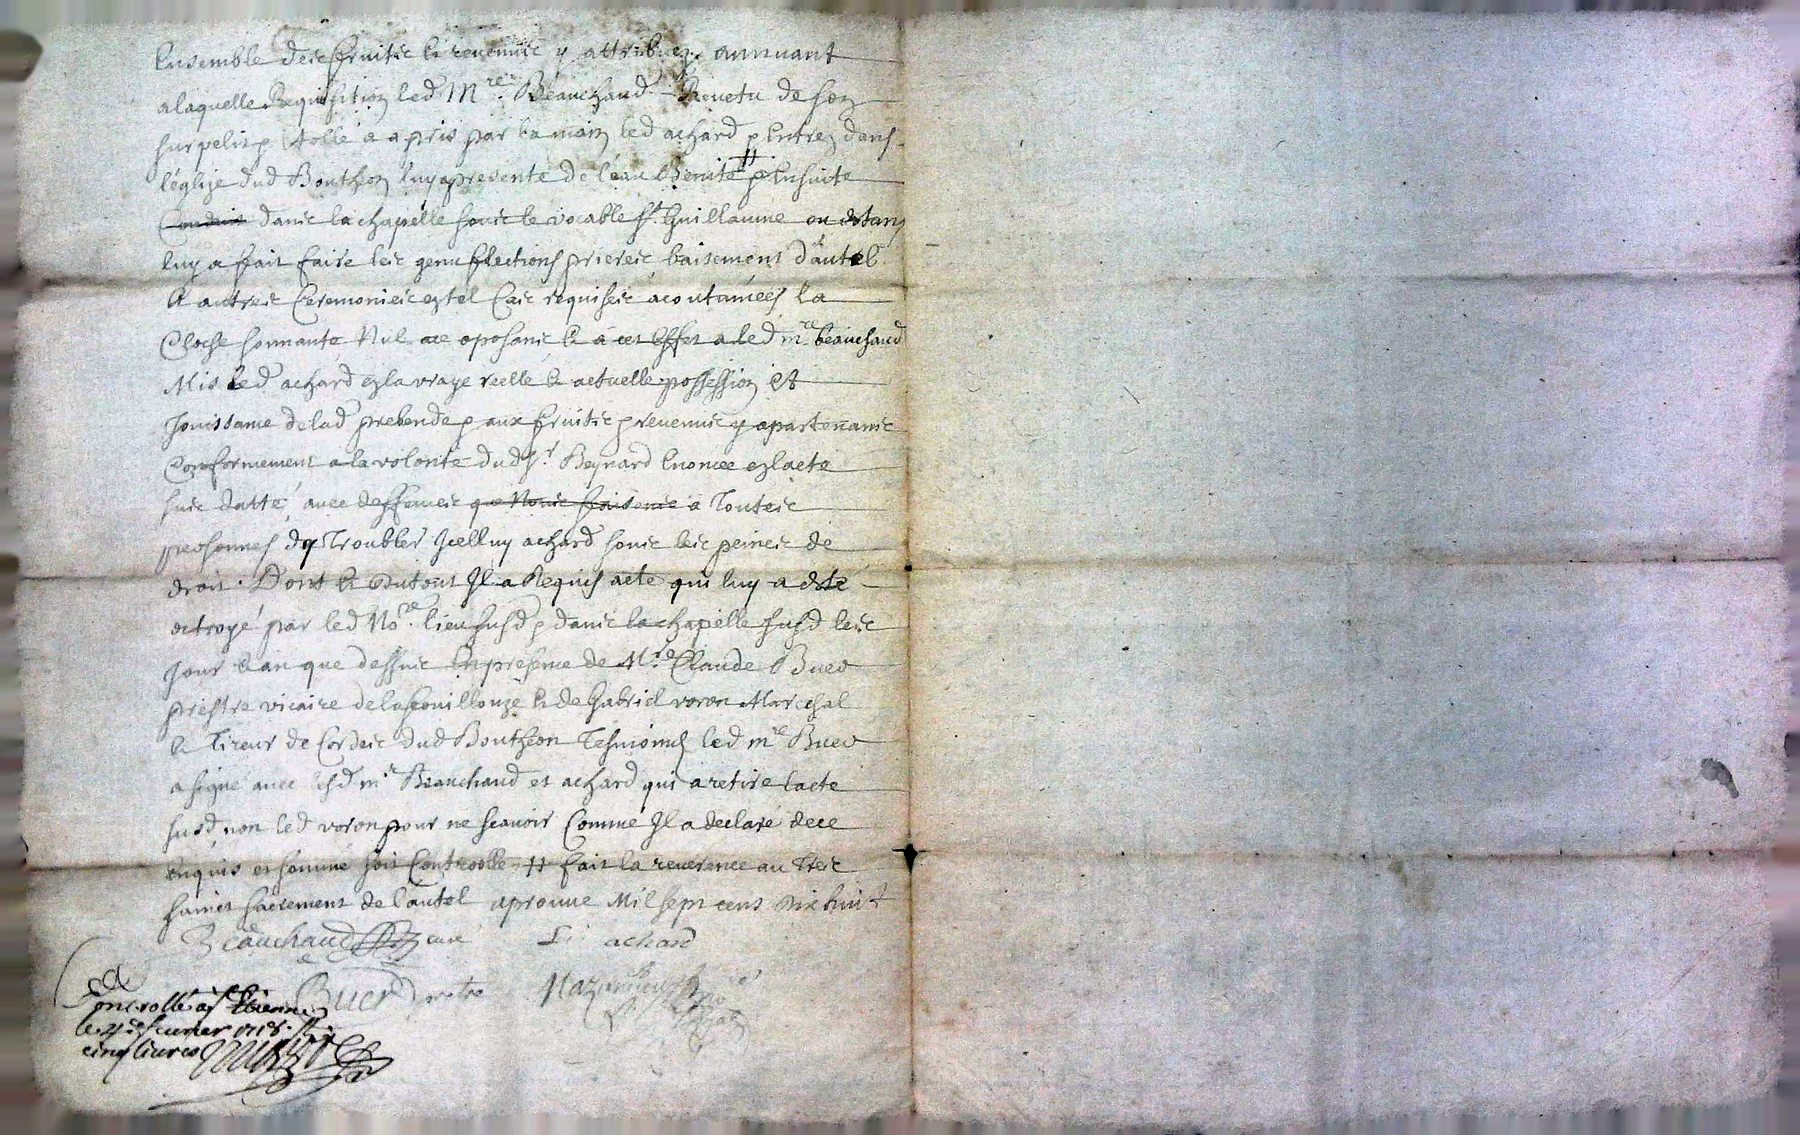 Ensemble desc fruitsc & revenusc y attribuez. annuant
a laquelle Requisition led Mre. Beauchand Revetu de son
surpelis & Etolle a a pris par la main led achard & Entrez dans
l'église dud Bouthon luy a presenté de l'eau Benite # & Ensuite
dansc la chapelle sousc le vocable St. Guillaume ou estans
luy a fait faire lesc genuflections prieresc baisement d'autel
& autresc Ceremoniesc en tel Casc requisesc acoutumées la
Cloche sonnante Nul ce oposant & a cet Effet a led mre beauchand
Mis led achard en la vraye reelle & actuelle possession et
Jouissance de lad prebende & aux fruitsc & revenusc y apartenansc
Conformement a la volonté dud Sr. Beynard Enoncée en l'acte
susc datté, avec deffencesc que Nousc faisonsc a Toutesc
personnes d'y Troubler Icelluy achard sousc lesc peinesc de
droit. Dont & du tout Il a Requis acte qui luy a esté
octroyé par led Nore. lieu susd & dansc la chapelle susd lesc
Jour & an que dessusc En presence de Mre Claude Buer
prestre vicaire de la fouillouze & de Gabriel voron Marechal
& Tireur de Cordesc dud Bouthéon Tesmoins led mre Buer
a signé avec lesd mr Beauchand et achard qui a retiré l'acte
susd non led voron pour ne scavoir Comme Il a declaré de ce
Enquis et sommé soit Controollé # fait la reverence au Tresc
Saint Sacrement de l'autel aprouvé Mil sept cens dix huit
Beauchand curé L. achard
Buer pretre
Controllé a St Etienne
le fevrier 1718.
cinq livres